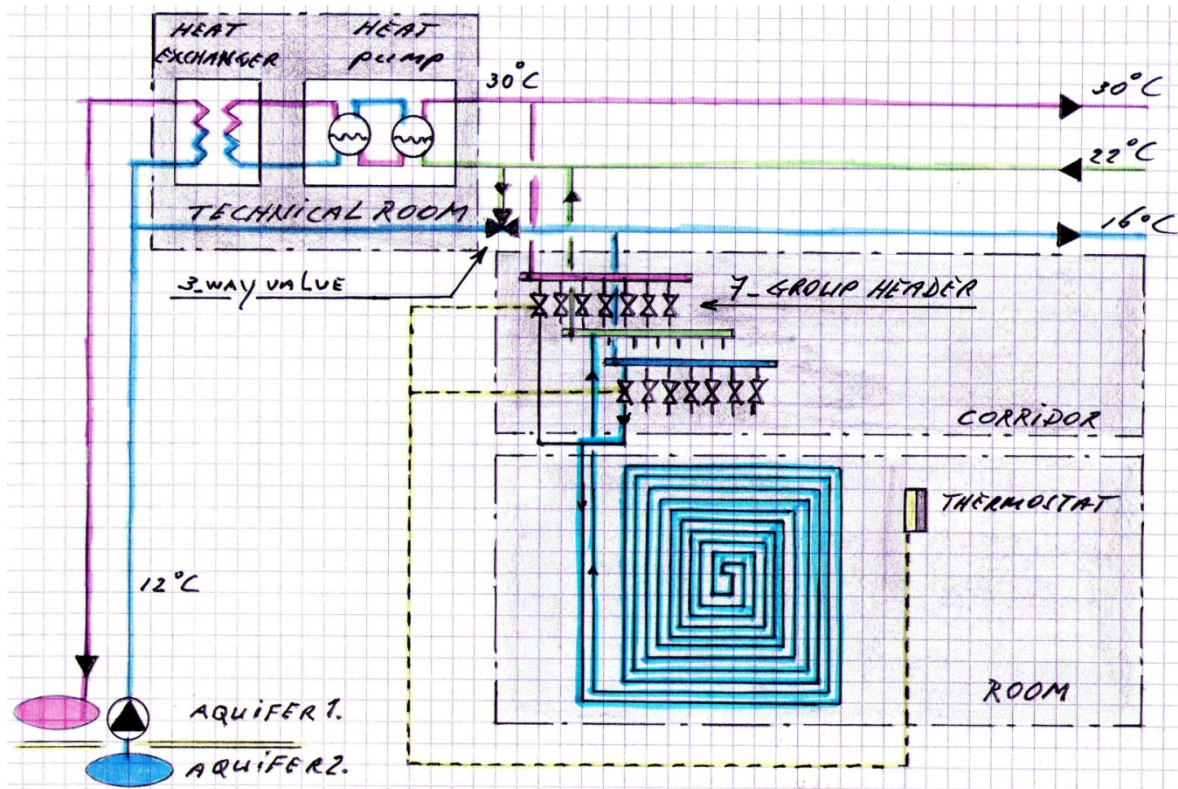 HEAT
EXCHANGER
HEAT
pump
30°C
30°C
22°C
TECHNICAL ROOM
16°C
3-WAY VALUE
7-GROUP HEADER
CORRIDOR
THERMOSTAT
12°C
ROOM
AQUIFER 1.
AQUIFER 2.